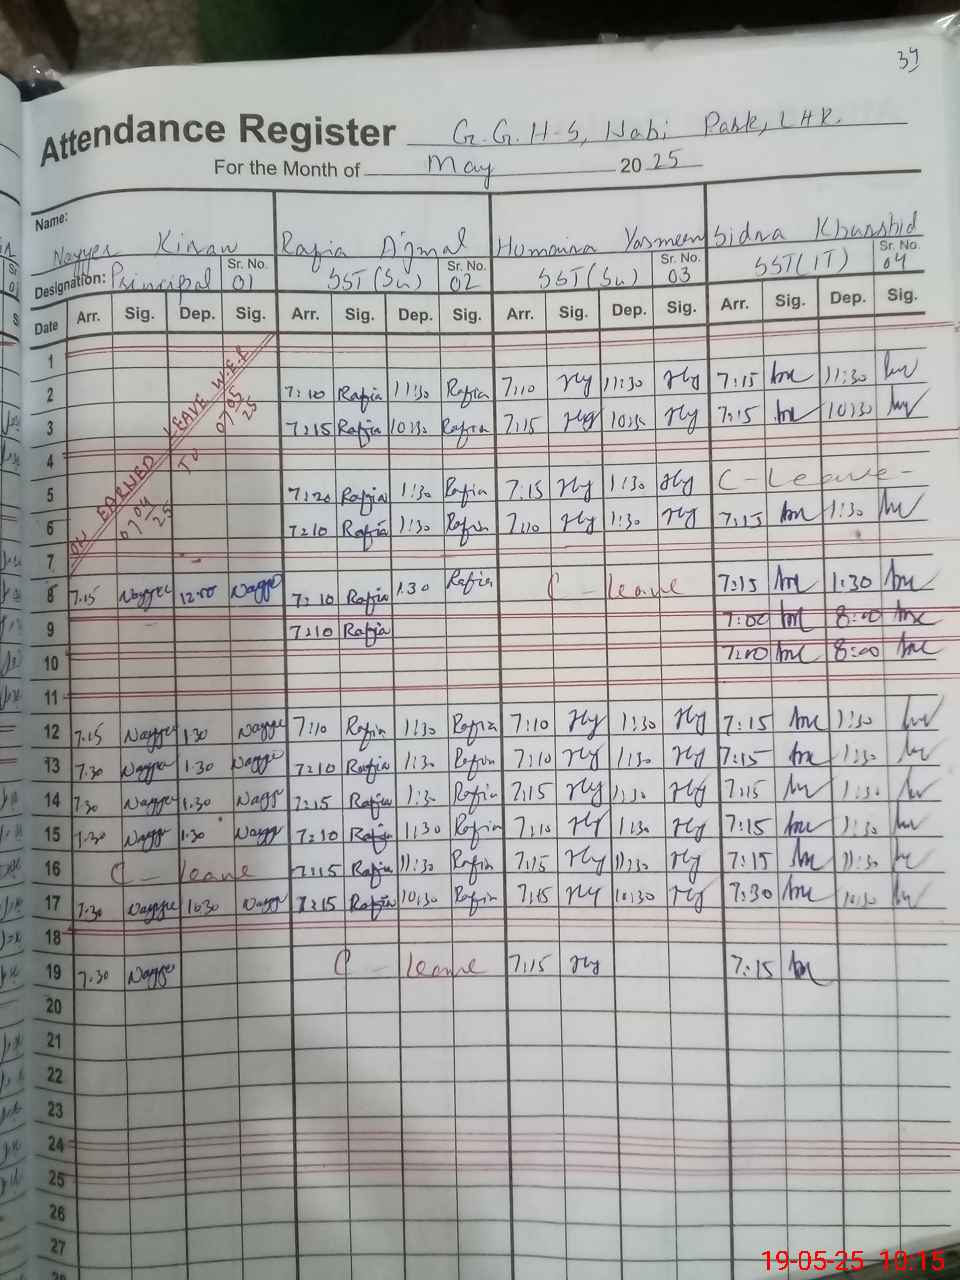 34
Attendance Register G.G.H-S, Nabi Park, LHR.
For the Month of May 2025
Name:
Nayyer Kiran Rafia Ajmal Humaira Yasmeen Sidra Khurshid
Designation: Principal Sr. No. 01 SST (Sc) Sr. No. 02 SST (Sc) Sr. No. 03 SST (IT) Sr. No. 04
Date Arr. Sig. Dep. Sig. Arr. Sig. Dep. Sig. Arr. Sig. Dep. Sig. Arr. Sig. Dep. Sig.
ON EARNED LEAVE W.E.F
07/04/25 TO 07/05/25
1
2 7:10 Rafia 11:30 Rafia 7:10 Hy 11:30 Hy 7:15 11:30
3 7:15 Rafia 10:30 Rafia 7:15 Hy 10:30 Hy 7:15 10:30
4
5 7:20 Rafia 1:30 Rafia 7:15 Hy 1:30 Hy C-Leave-
6 7:10 Rafia 1:30 Rafia 7:10 Hy 1:30 Hy 7:15 1:30
7
8 7.15 Nayyer 12:00 Nayyer 7:10 Rafia 1.30 Rafia C-leave 7:15 1:30
9 7:10 Rafia 7:00 8:00
10 7:00 8:00
11
12 7.15 Nayyer 1.30 Nayyer 7:10 Rafia 1:30 Rafia 7:10 Hy 1:30 Hy 7:15 1:30
13 7.30 Nayyer 1.30 Nayyer 7:10 Rafia 1:30 Rafia 7:10 Hy 1:30 Hy 7:15 1:30
14 7.30 Nayyer 1.30 Nayyer 7:15 Rafia 1:30 Rafia 7:15 Hy 1:30 Hy 7:15 1:30
15 1.30 Nayyer 1.30 Nayyer 7:10 Rafia 1:30 Rafia 7:10 Hy 1:30 Hy 7:15 1:30
16 C-leave 7:15 Rafia 11:30 Rafia 7:15 Hy 11:30 Hy 7:15 11:30
17 7.30 Nayyer 10.30 Nayyer 7:15 Rafia 10:30 Rafia 7:15 Hy 10:30 Hy 7:30 10:30
18
19 7.30 Nayyer C-leave 7:15 Hy 7:15
20
21
22
23
24
25
26
27
28
19-05-25 10:15